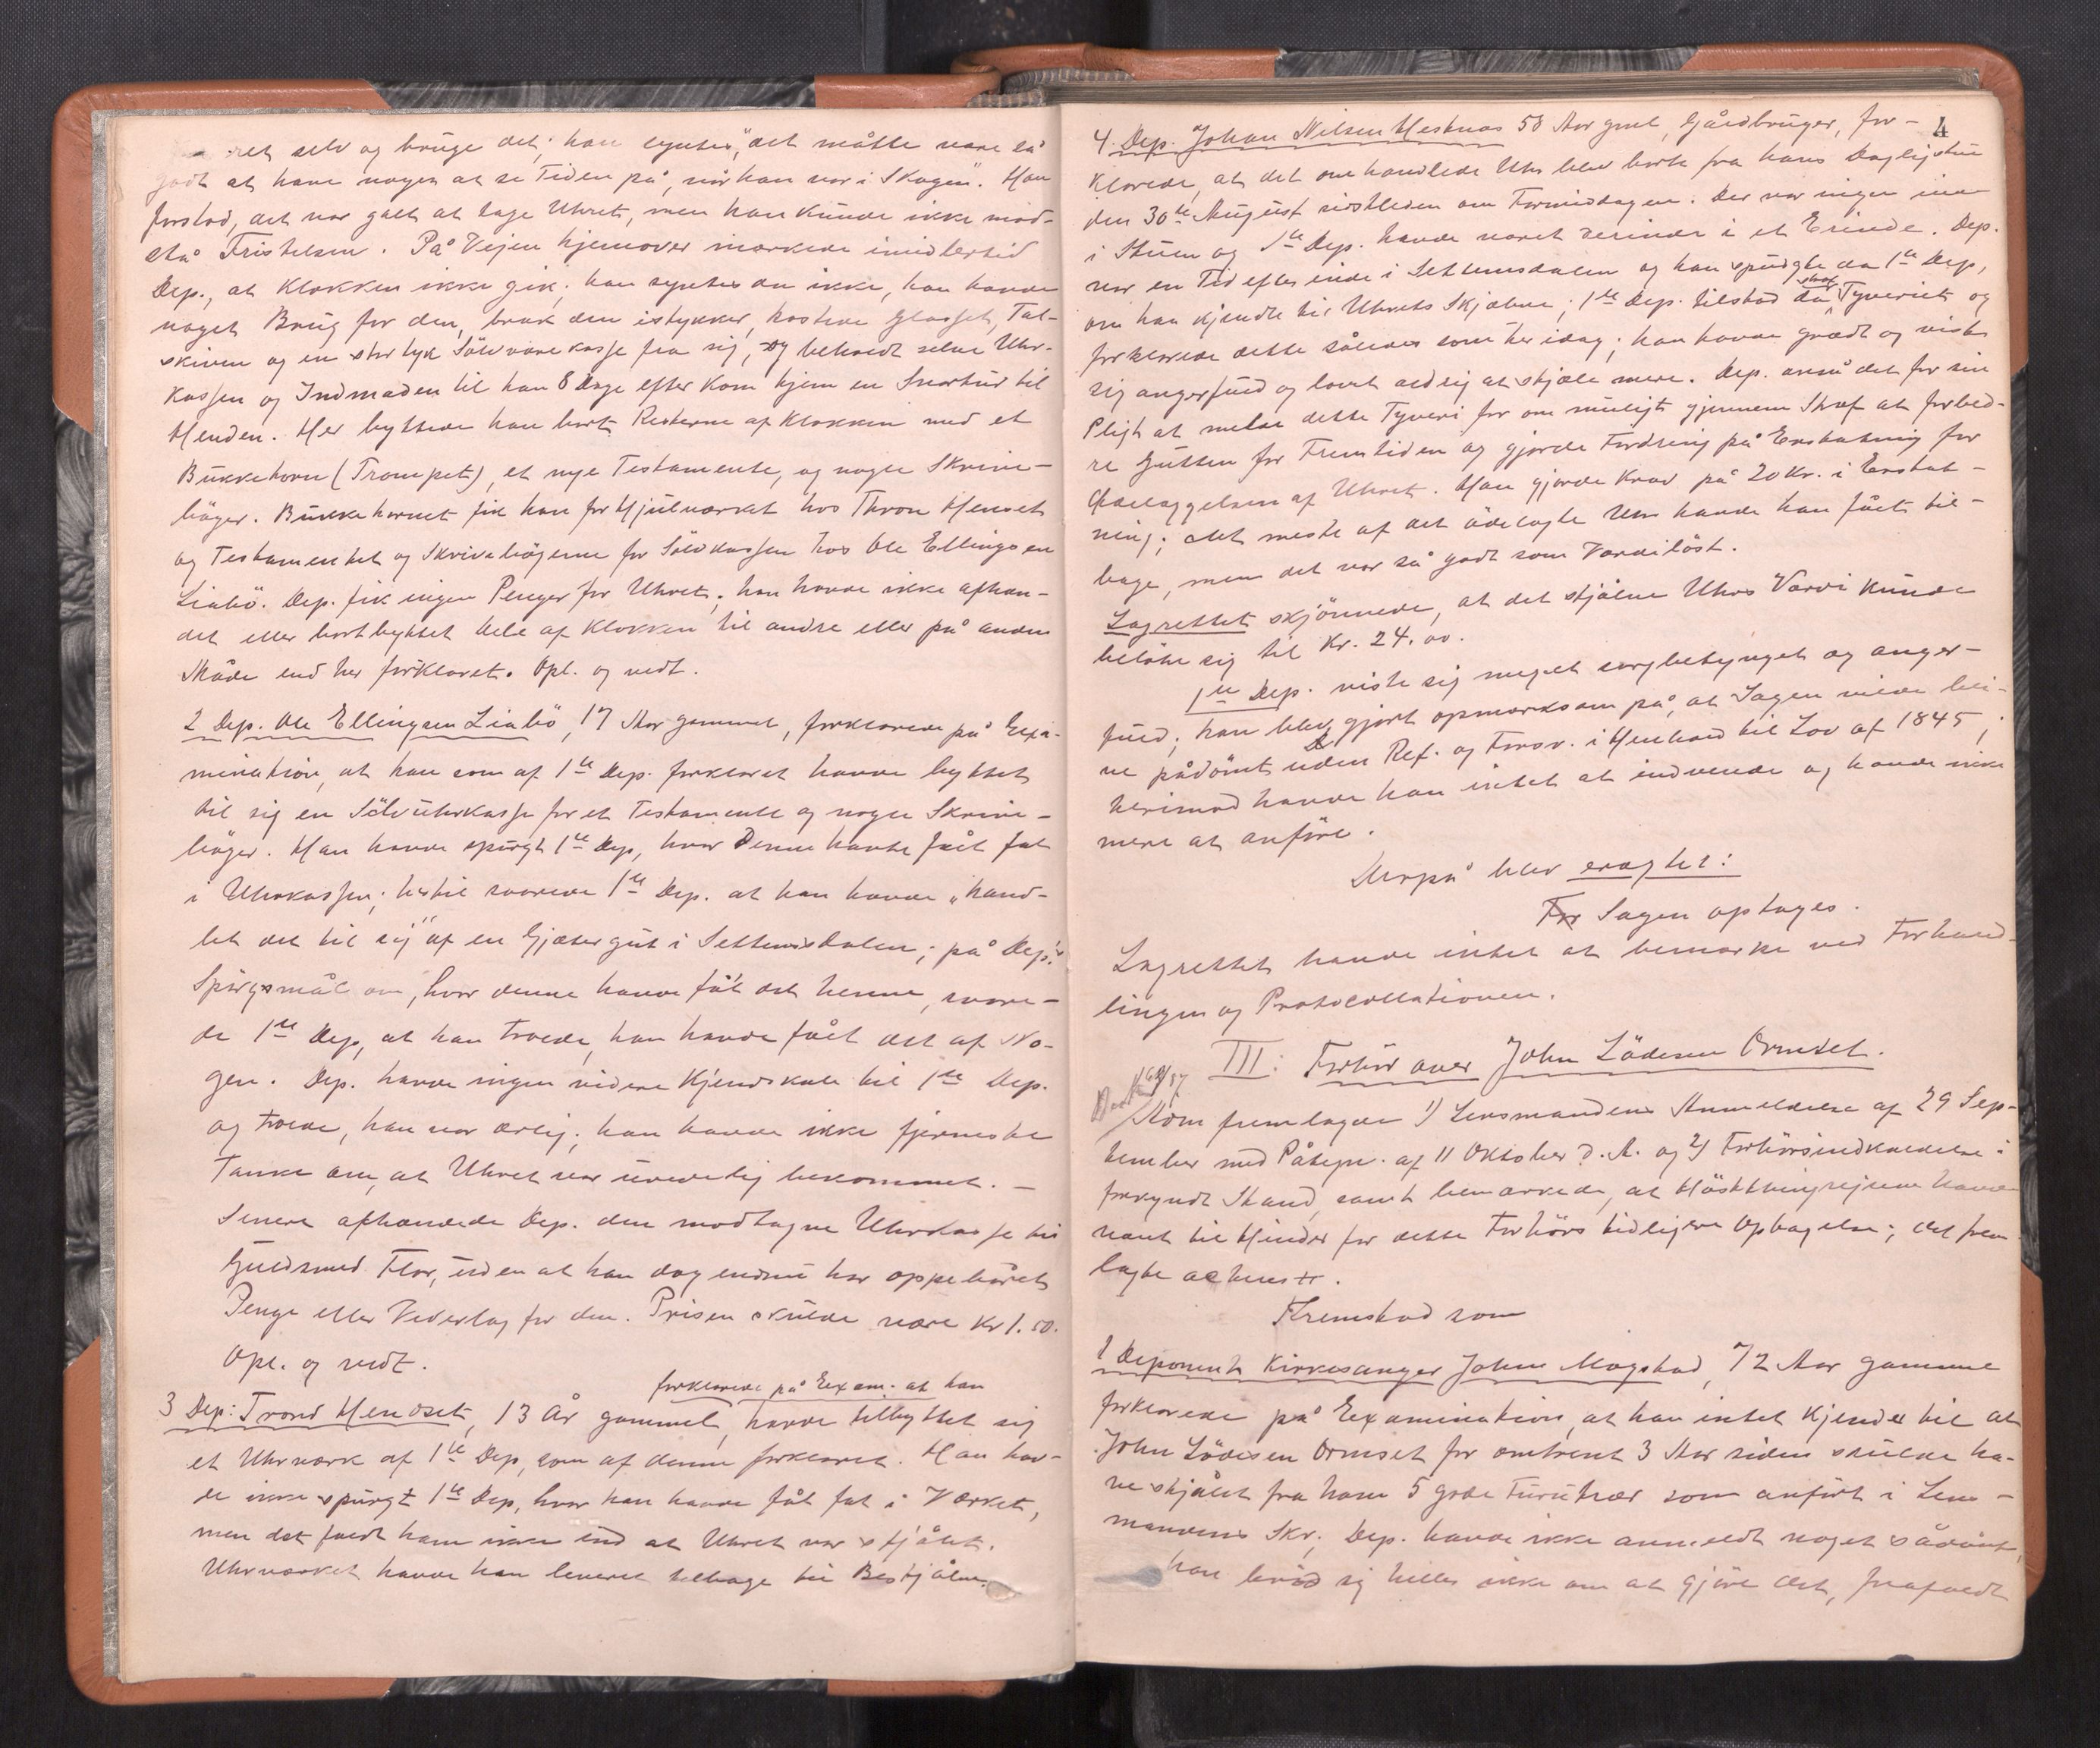 ret selv og bruge det; han syntes, "det måtte være så
godt at have nogen at se Tiden på, når han var i Skogen". Han
forstod, det var galt at tage Uhret, men han kunde ikke mod-
stå Fristelsen. På Vejen hjemover mærkede imidlertid
Dep., at Klokken ikke gik; han syntes da ikke, han havde
noget Brug for den, brak den istykker, kastede Glasset, Tal-
skiven og en stor tyk Sölvvare kasse fra sig, og beholdt selve Uhr-
kassen og Indmaden til han 8 Dage efter kom hjem en Snartur til
Henden. Her byttede han bort Resterne af Klokken med et
Bukkehorn (Trompet), et nye Testamente, og nogle Skrive-
böger. Bukkehornet fik han for Hjulværket hos Thron Henset
og Testamentet og Skrivebögerne for Sölvkassen hos Ole Ellingsen
Liabö. Dep. fik ingen Penger for Uhret; han havde ikke afhæn-
det eller bortbyttet Dele af Klokken til andre eller på anden
Måde end her forklaret. Opl. og vedt.
2 Dep. Ole Ellingsen Liabö, 17 Aar gammel, forklarede på Exa-
mination, at han som af 1ste Dep. forklaret havde byttet
til sig en Sölvuhrkasse for et Testamente og nogle Skrive-
böger. Han havde spurgt 1ste Dep, hvor Denne havde fåt fat
i Uhrkassen; hertil svarede 1ste Dep. at han havde "hand-
let det til sig" af en Gjætergut i Settemsdalen; på Dep.'s
Spörgsmål om, hvor denne havde fåt det henne, svare-
de 1ste Dep, at han troede, han havde fåt det af No-
gen. Dep. havde ingen videre Kjendskab til 1ste Dep.
og troede, han var ærlig; han havde ikke fjerneste
Tanke om, at Uhret var uredelig bekommet. —
Senere afhændede Dep. den modtagne Uhrkasse til
Guldsmed Flor, uden at han dog endnu har oppebåret
Penge eller Vederlag for den. Prisen skulde være Kr 1.50.
Opl. og vedt.
forklarede på Exam. at han
3 Dep: Trond Hendset, 13 År gammel, havde tilbyttet sig
et Uhrværk af 1ste Dep, som af denne forklaret. Han hav-
de ikke spurgt 1ste Dep, hvor han havde fåt fat i Værket,
men det faldt ham ikke ind at Uhret var stjålet.
Uhrværket havde han leveret tilbage til Bestjålne.
4
4. Dep. Johan Nilsen Hestnæs 58 Aar gml, Gårdbruger, for-
klarede, at det omhandlede Uhr blev borte fra hans Dagligstue
den 30te August sidstleden om Formiddagen. Der var ingen inde
i Stuen og 1ste Dep. havde været derinde i et Erinde. Dep.
var en Tid efter inde i Settemsdalen og han spurgte da 1ste Dep,
om han kjendte til Uhrets Skjæbne; 1ste Dep. tilstod da strax Tyveriet og
forklarede dette således som her idag; han havde grædt og vist
sig angerfuld og lovet aldrig at stjæle mere. Dep. anså det for sin
Pligt at melde dette Tyveri for om muligt gjennem Straf at forbed-
re Gutten for Fremtiden og gjorde Fordring på Erstatning for
Ödelæggelsen af Uhret. Han gjorde Krav på 20 Kr. i Erstat-
ning; det meste af det ödelagte Uhr havde han fået til-
bage, men det var så godt som Værdilöst.
Lagrettet skjönnede, at det stjålne Uhrs Værdi kunde
belöbe sig til Kr. 24.00.
1ste Dep. viste sig meget sorgbetynget og anger-
fuld; han blev gjort opmærksom på, at Sagen vilde bli-
ve pådömt uden Ref. og Forsv. i Henhold til Lov af 1845;
herimod havde han intet at indvende og havde ikke
mere at anföre.
Derpå blev eragtet:
For Sagen optages.
Lagrettet havde intet at bemærke ved Forhand-
lingen og Protocollationen.
III: Forhör over John Lödesen Ormset.
Kom fremlagde 1) Lensmandens Anmeldelse af 29 Sep-
tember med Påtegn. af 11 Oktober d. A. og 2) Forhörsindkaldelse i
forkyndt Stand, samt bemærkede, at Hösttingreisene havde
været til Hinder for dette Forhörs tidligere Optagelse; det frem-
lagte acteres.
Fremstod som
1 Deponent Kirkesanger John Mogstad, 72 Aar gammel
forklarede på Examination, at han intet kjender til at
John Lödesen Ormset for omtrent 3 Aar siden skulde ha-
ve stjålet fra ham 5 gode Furutrær som anfört i Lens-
mandens Skr.; Dep. havde ikke anmeldt noget sådant,
han bröd sig heller ikke om at gjöre det, frafaldt